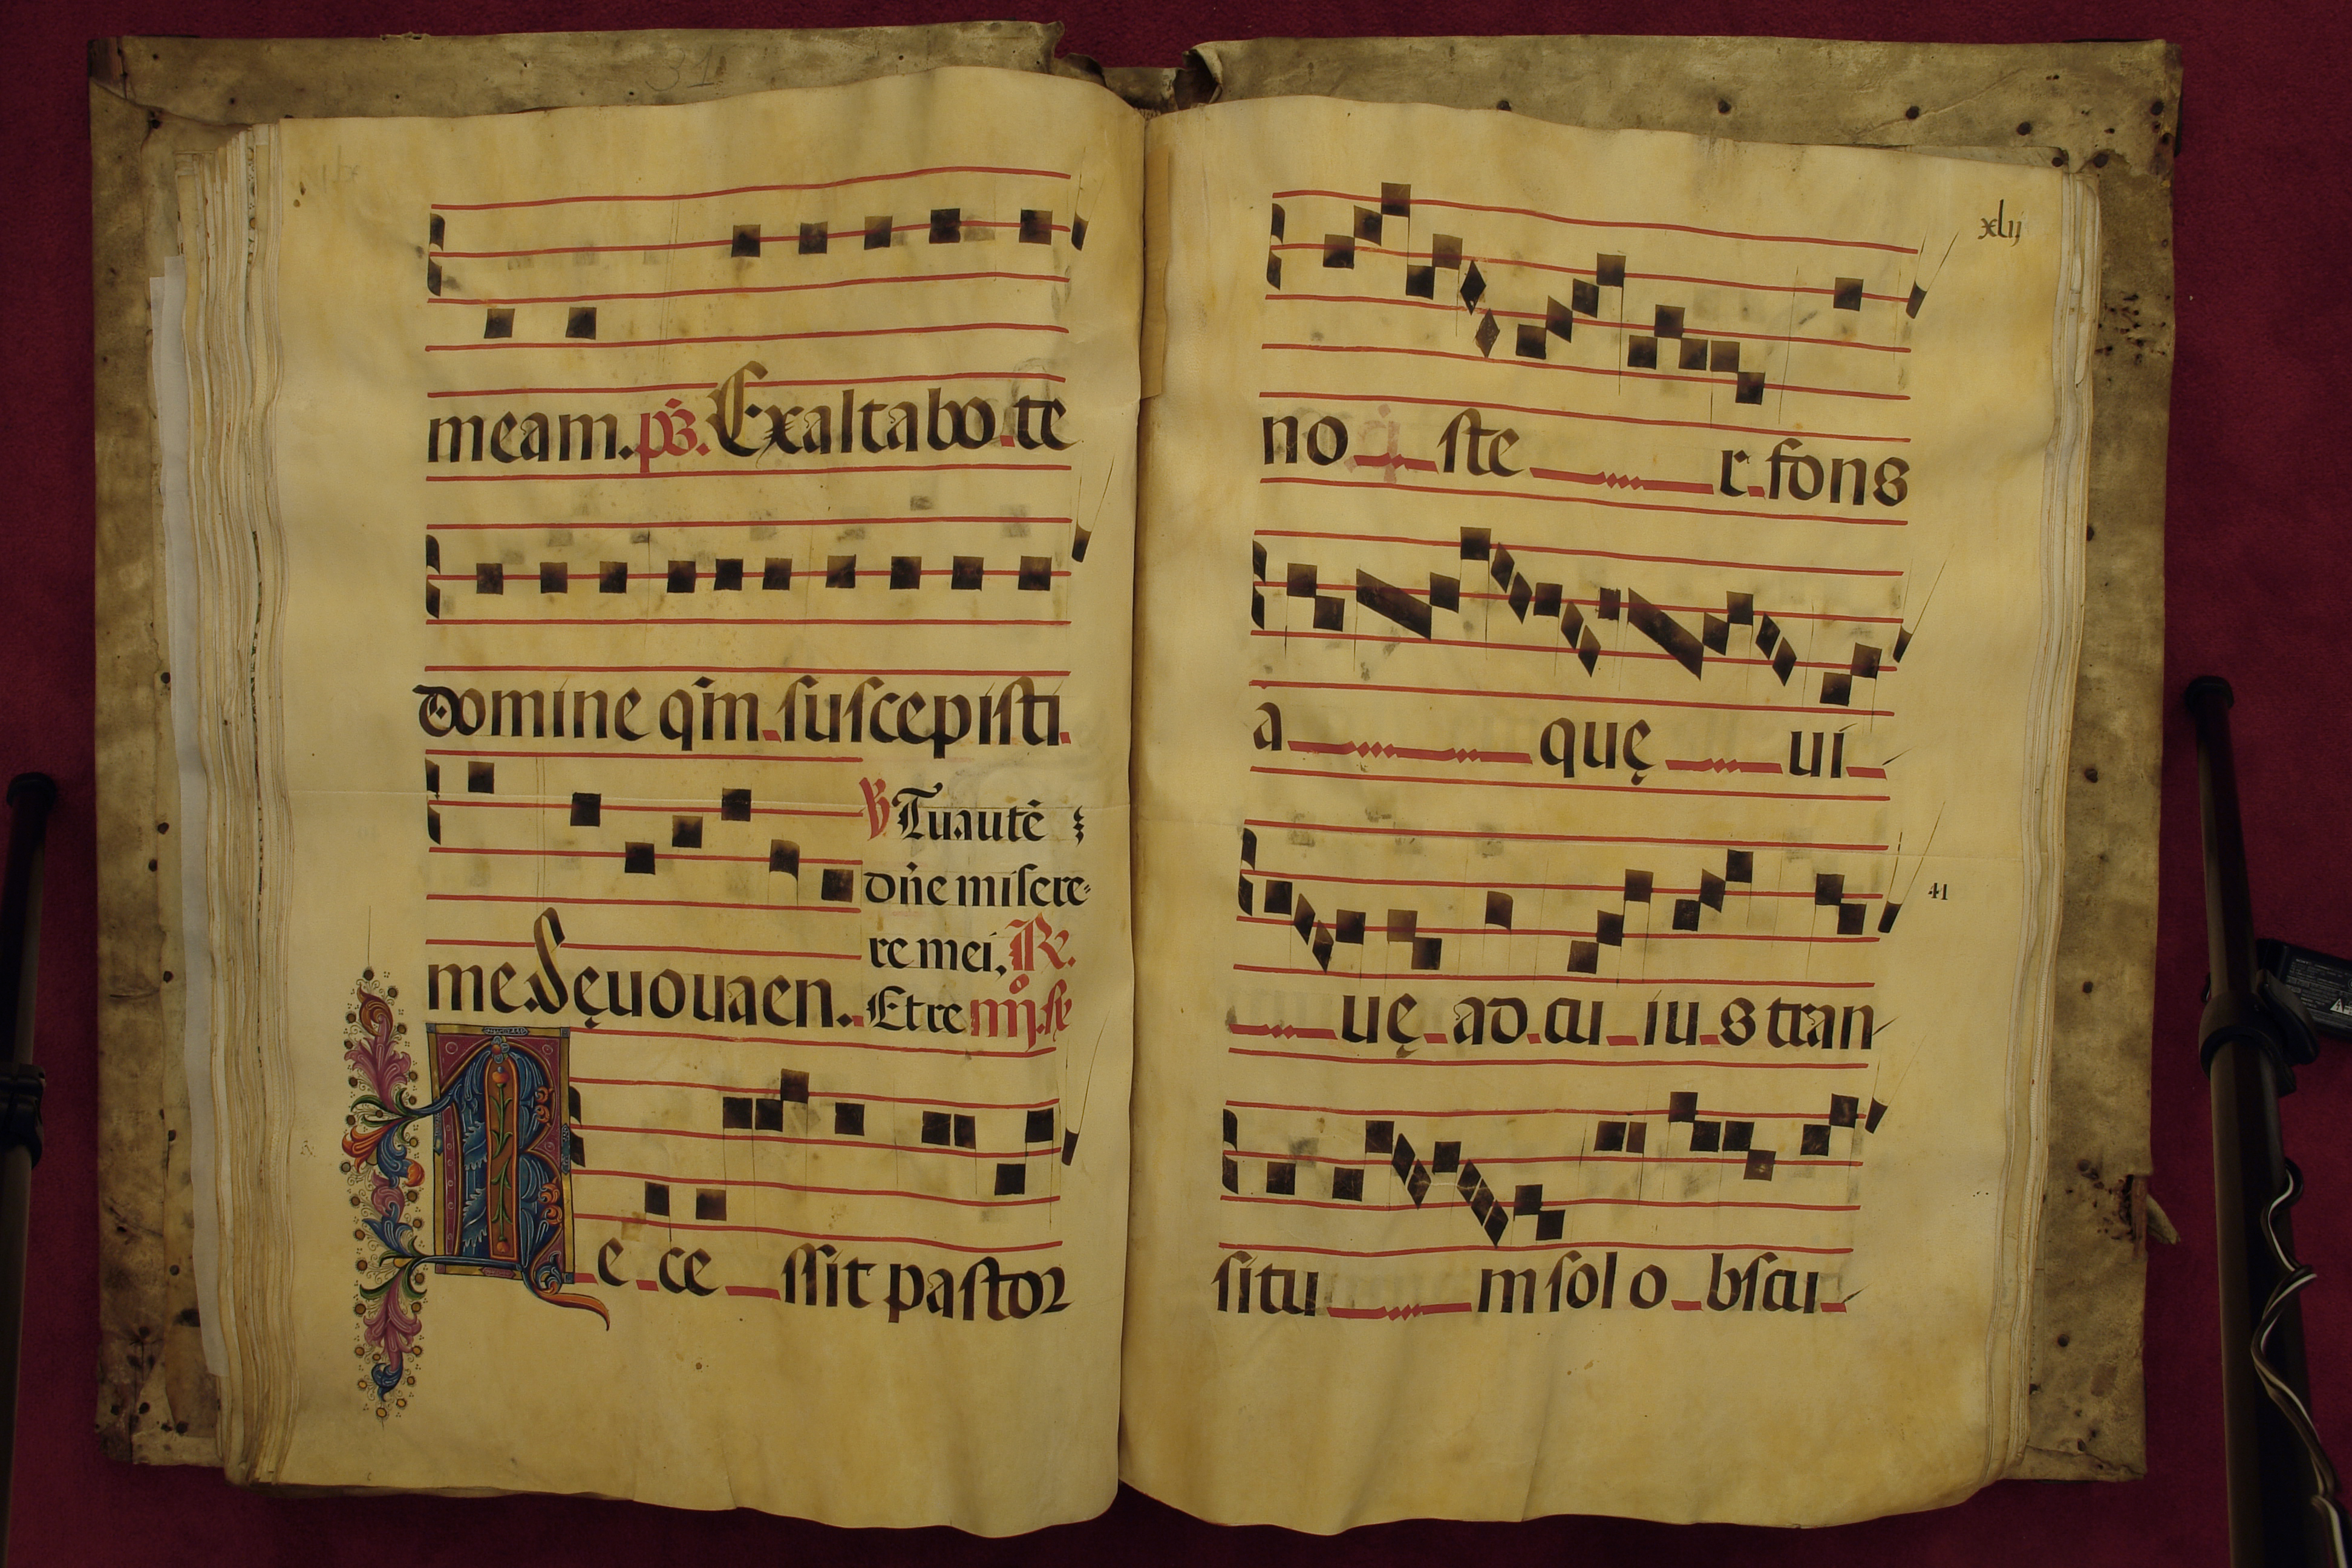 31
meam. ps. Exaltabo te
domine qm̄ suscepisti
me. Seuouaen.
℣ Tu aute᷑
dn̄e misere-
re mei, ℟.
Et re
Rece ssit pastor
xlij
no ste r. fons
a quę ui
uę ad cu iu s tran
41
situ m sol o bscu